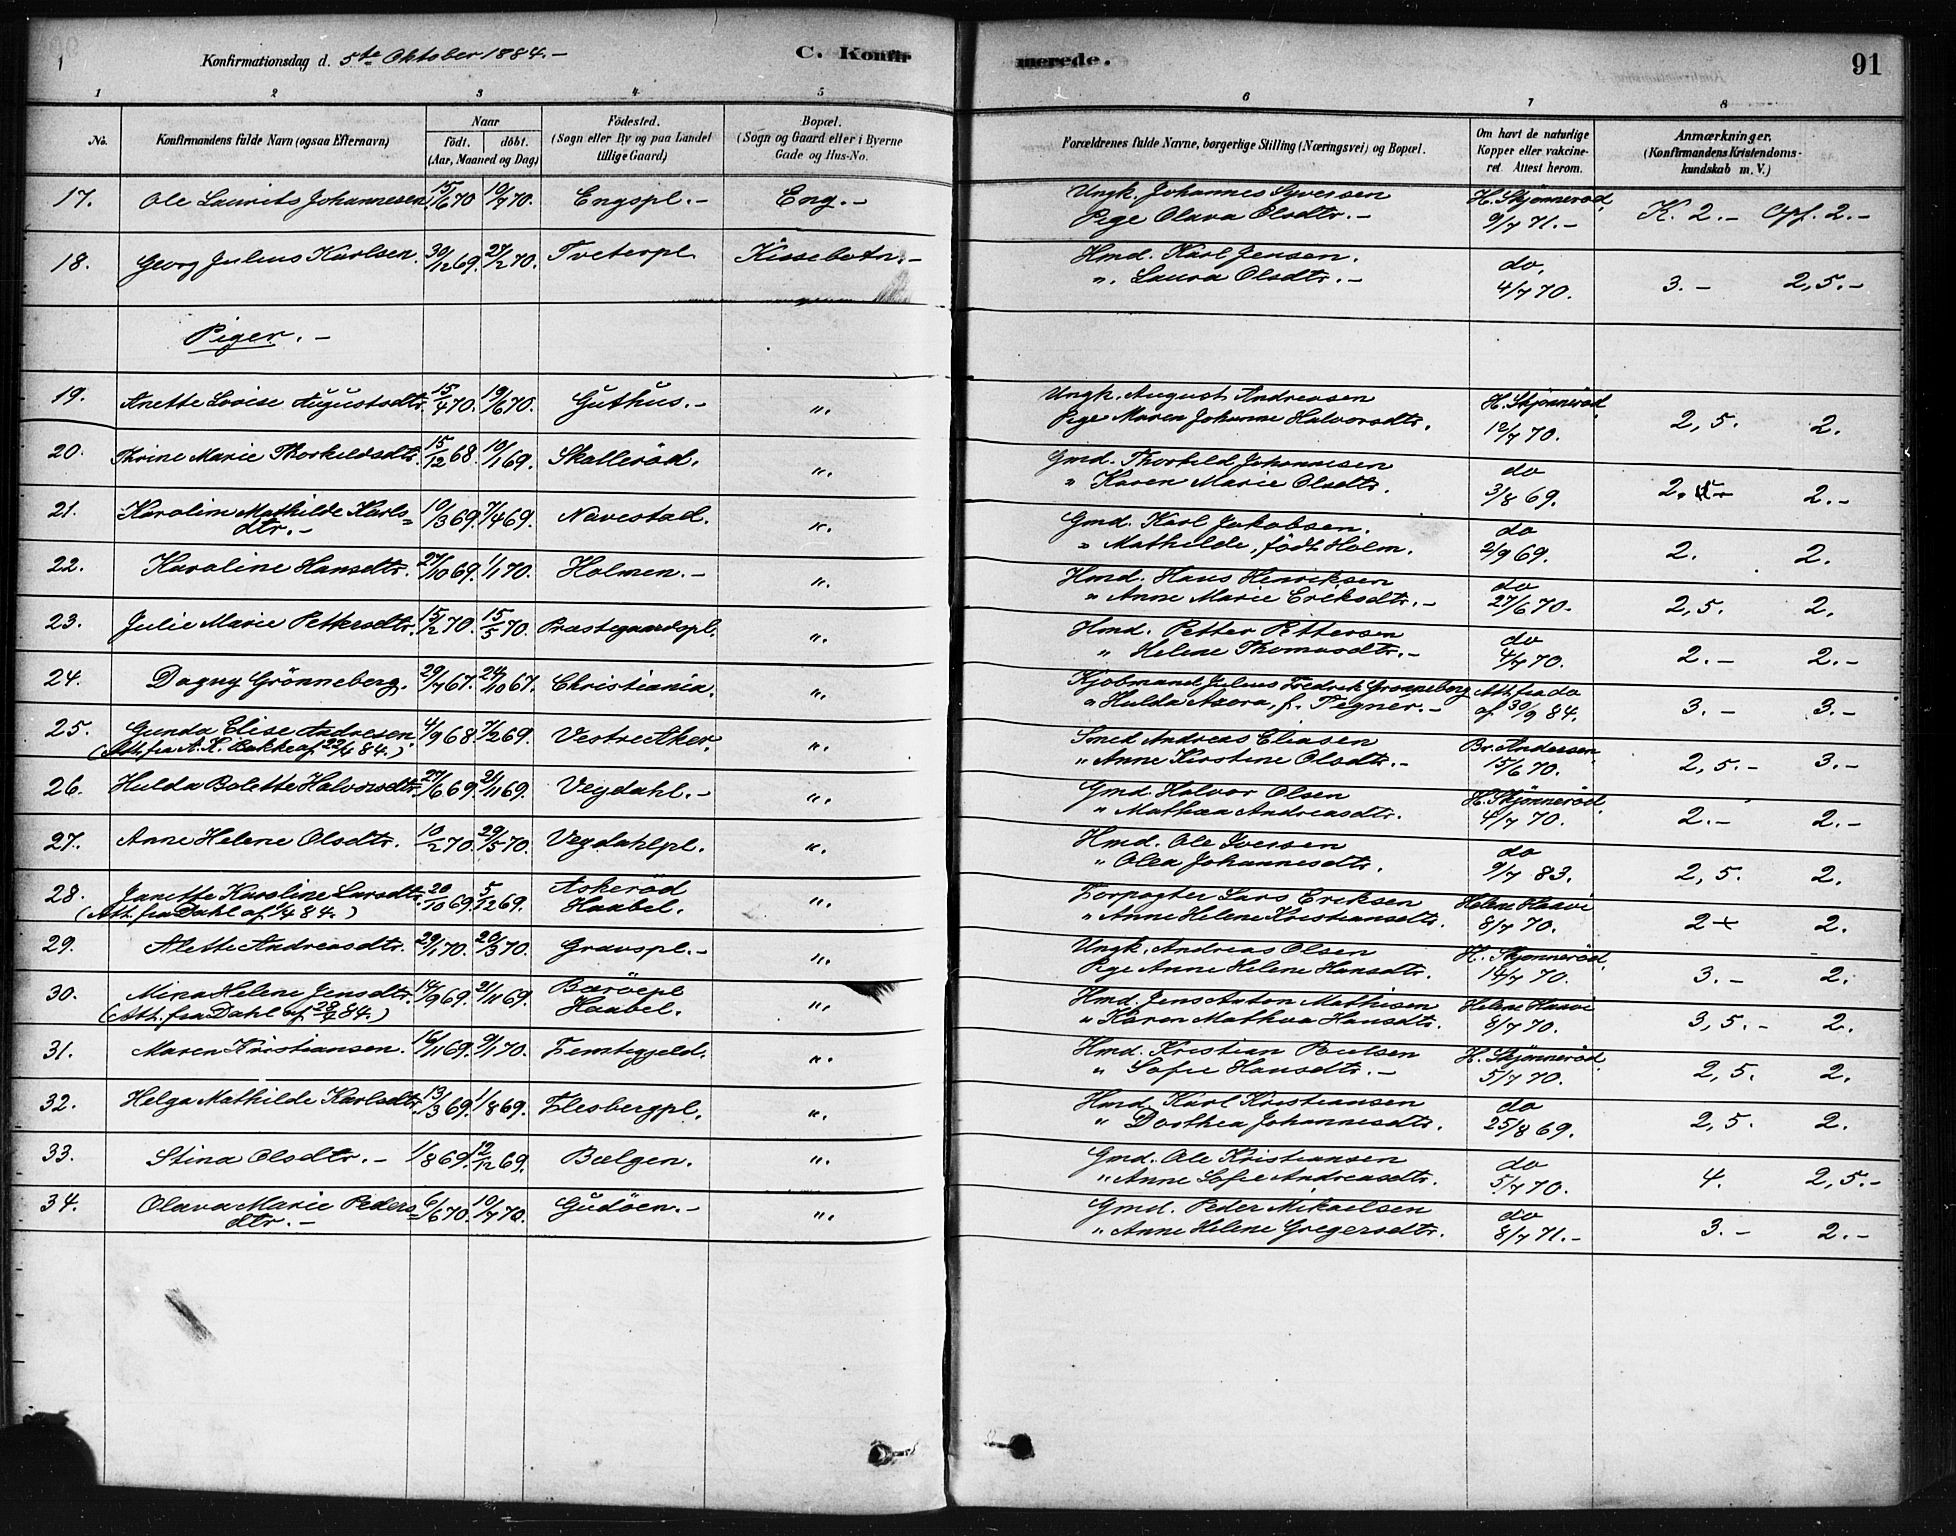 Konfirmationsdag d. 5te Oktober 1884. –
C. Konfir
merede.
91
1 2 3 4 5 6 7 8
No. Konfirmandens fulde Navn (ogsaa Efternavn) Naar födt. döbt. (Aar, Maaned og Dag) Födested. (Sogn eller By og paa Landet tillige Gaard) Bopæl. (Sogn og Gaard eller i Byerne Gade og Hus-No. Forældrenes fulde Navne, borgerlige Stilling (Næringsvei) og Bopæl. Om havt de naturlige Kopper eller vakcineret. Attest herom. Anmærkninger, (Konfirmandens Kristendomskundskab m. V.)
17. Ole Laurits Johannesen 15/6 70 10/7 70. Engspl. – Eng. – Ungk. Johannes Syversen
Pige Olava Olsdtr. – H. Skjönneröd. 9/7 71. – K. 2. – Opf. 2. –
18. Georg Julius Karlsen. 30/12 69. 27/2 70. Tveterpl. Kissebotn. – Hmd. Karl Jensen.
". Laura Olsdtr. – do. 4/7 70. 3. – 2,5. –
Piger. –
19. Anette Lovise Augustsdtr. 15/4 70. 19/6 70. Guthus. – ". Ungk. August Andreasen
Pige Maren Johanne Halvorsdtr. H. Skjönneröd. 12/7 70. 2,5. 2.
20. Thrine Marie Thorkildsdtr. 15/12 68. 10/1 69. Skalleröd. ". Gmd. Thorkild Johannesen
" Karen Marie Olsdtr. do 3/8 69. 2. 2. –
21. Karoline Mathilde Karls=
dtr. – 10/3 69. 7/4 69. Navestad. ". Gmd. Karl Jakobsen.
" Mathilde, födt Holm. do 2/9 69. 2. 2.
22. Karoline Hansdtr. 27/10 69. 1/1 70. Holmen. – ". Hmd. Hans Henriksen
" Anne Marie Eriksdtr. – do 27/6 70. 2,5. 2.
23. Julie Marie Pettersdtr. 15/2 70. 15/5 70. Præstegaardspl. ". Hmd. Petter Pettersen
" Helene Thomasdtr. – do 4/7 70. 2. – 2. –
24. Dagny Grönneberg. 29/7 67. 24/10 67. Christiania. ". Kjöbmand Julius Fredrik Grönneberg
" Hulda Azora, f. Tegner. – Att. fra do af 30/9 84. 3. – 3. –
25. Gunda Elise Andresen.
(Att. fra A. K. Bakke af 22/4 84.) 4/9 68. 7/2 69. Vestre Aker. ". Smed Andreas Eliasen
" Anne Kirstine Olsdtr. – Br. Andersen. 15/6 70. 2,5. – 3. –
26. Hulda Bolette Halvorsdtr. 27/6 69. 21/11 69. Vegdahl. – ". Gmd. Halvor Olsen
" Mathea Andreasdtr. H. Skjönneröd. 4/7 70. 2. – 2. –
27. Anne Helene Olsdtr. 10/2 70. 29/5 70. Vegdahlpl. ". Hmd. Ole Iversen
" Olea Johannesdtr. do 9/7 83. 2,5. 2.
28. Janette Karoline Larsdtr.
(Att. fra Dahl af 1/4 84.) 20/10 69. 5/12 69. Askeröd
Haabel. ". Forpagter Lars Eriksen
" Anne Helene Kristiansdtr. Helene Haavi 8/7 70. 2 + 2.
29. Alette Andreasdtr. 29/1 70. 20/3 70. Gravspl. – ". Ungk. Andreas Olsen
Pige Anne Helene Hansdtr. H. Skjönneröd. 14/7 70. 3. – 2.
30. Mina Helene Jensdtr.
(Att. fra Dahl af 28/4 84.) 14/9 69. 21/11 69. Baröepl
Haabel. ". Hmd. Jens Anton Mathisen
" Karen Mathea Hansdtr. Helene Haavi 8/7 70. 3,5. – 2.
31. Maren Kristiansen. 16/11 69. 9/1 70. ". Hmd. Kristian Poulsen
" Sofie Hansdtr. – H. Skjönneröd. 5/7 70. 2,5. 2.
32. Helga Mathilde Karlsdtr. 13/3 69. 1/8 69. Elesbergpl. ". Hmd. Karl Kristiansen
" Dorthea Johannesdtr. do 25/8 69. 2,5. 2.
33. Stina Olsdtr. – 1/8 69. 12/12 69. Bælgen. ". Gmd. Ole Kristiansen
" Anne Sofie Andreasdtr. do 5/7 70. 4. 2,5. –
34. Olava Marie Peders=
dtr. – 6/6 70. 10/7 70. Gudöen. – ". Gmd. Peder Mikaelsen
" Anne Helene Gregersdtr. do 8/7 71. – 3. – 2. –